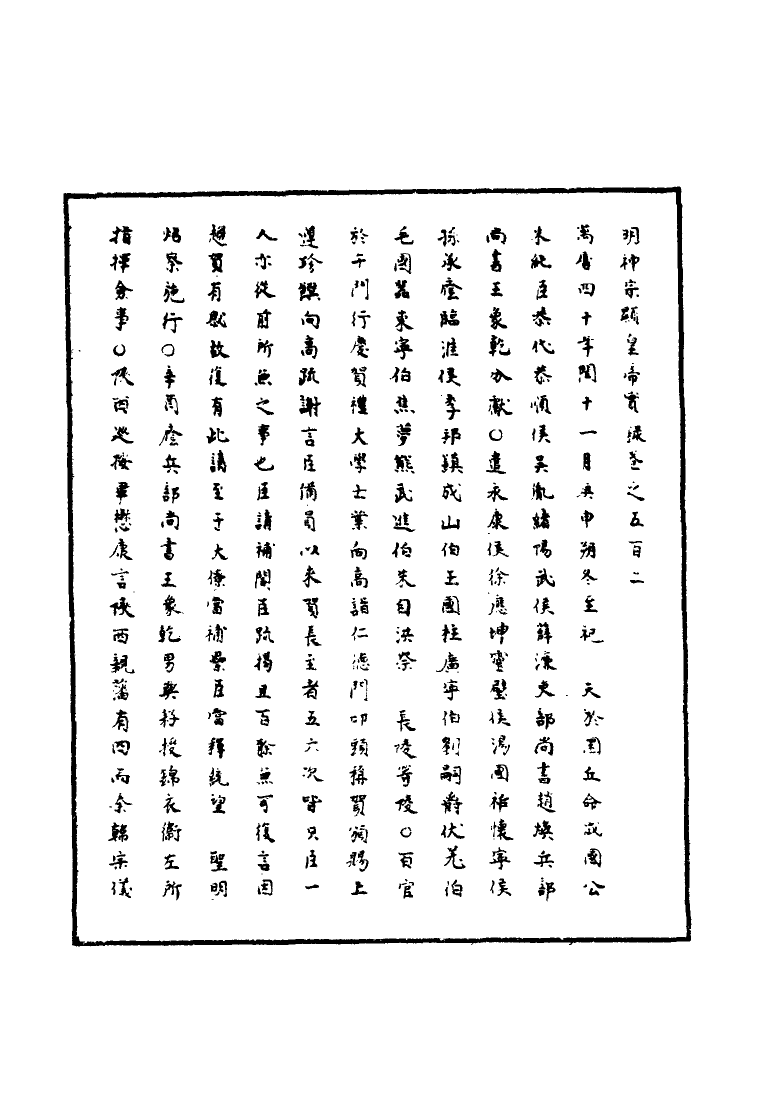 明神宗顯皇帝實錄卷之五百二
萬曆四十年閏十一月庚申朔冬至祀　天於圜丘命成國公
朱純臣恭代恭順侯吳胤嬉陽武侯薛濂吏部尚書趙煥兵部
尚書王象乾分獻○遣永康侯徐應坤靈璧侯湯國祚懷寧侯
孫承廕臨淮侯李邦鎮成山伯王國柱廣寧伯劉嗣爵伏羌伯
毛國器東寧伯焦夢熊武進伯朱自洪祭　長陵等陵○百官
於午門行慶賀禮大學士葉向高詣仁德門叩頭稱賀獨賜上
遵珍饌向高疏謝言臣備員以來賀長至者五六次皆只臣一
人亦從前所無之事也臣請補閣臣疏揭且百餘無可復言因
趨賀有感故復有此請至于大僚當補纍臣當釋統望　聖明
炤察施行○辛酉廕兵部尚書王象乾男與錦衣衛左所
指揮僉事○陝西巡按畢懋康言陝西親藩有四而余歸宗儀